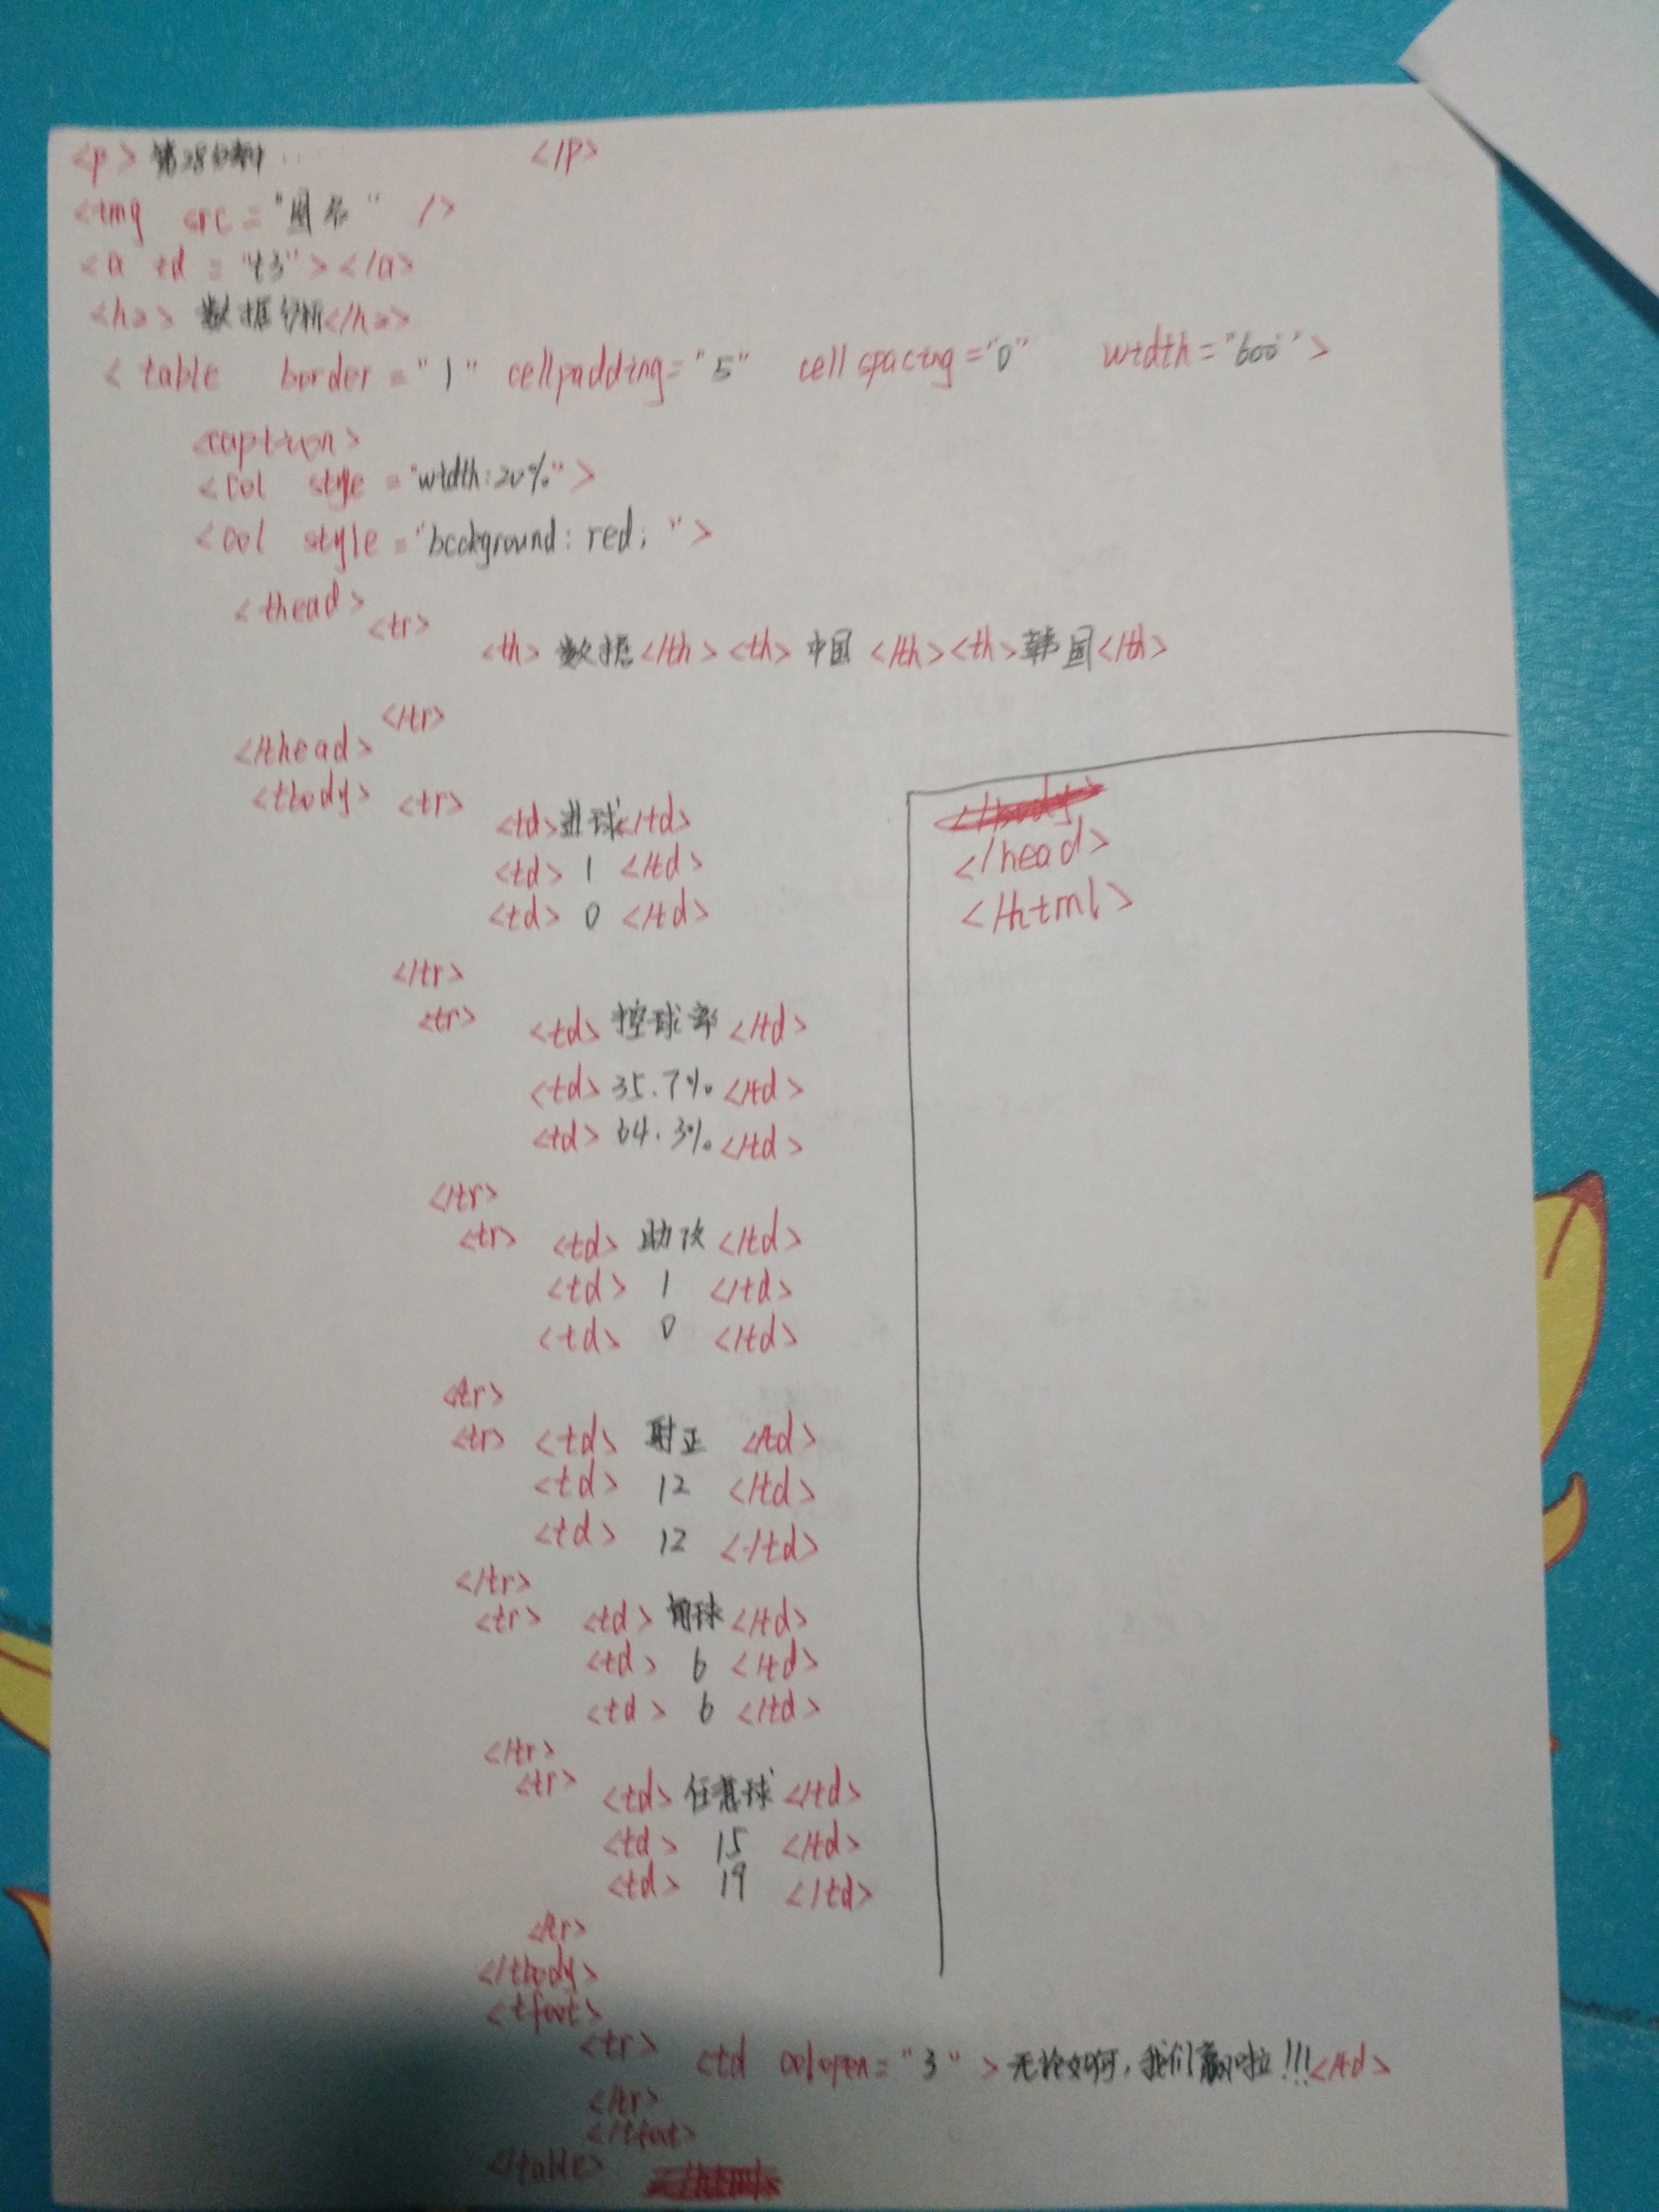 <p> 第28分钟 ...... </p>
<img src="图名" />
<a id="t3"></a>
<h2> 数据分析</h2>
<table border="1" cellpadding="5" cellspacing="0" width="600">
<caption>
<col style="width:20%">
<col style="background: red; ">
<thead> <tr>
<th> 数据</th> <th> 中国 </th> <th> 韩国</th>
</tr>
</thead>
<tbody> <tr>
<td>进球</td>
<td> 1 </td>
<td> 0 </td>
</tr>
<tr> <td> 控球率 </td>
<td> 35.7% </td>
<td> 64.3% </td>
</tr>
<tr> <td> 助攻 </td>
<td> 1 </td>
<td> 0 </td>
</tr>
<tr> <td> 射正 </td>
<td> 12 </td>
<td> 12 </td>
</tr>
<tr> <td> 角球 </td>
<td> 6 </td>
<td> 6 </td>
</tr>
<tr> <td> 任意球 </td>
<td> 15 </td>
<td> 19 </td>
</tr>
</tbody>
<tfoot>
<tr> <td colopen="3"> 无论如何,我们赢啦!!!</td>
</tr>
</tfoot>
</table>
</head>
</html>